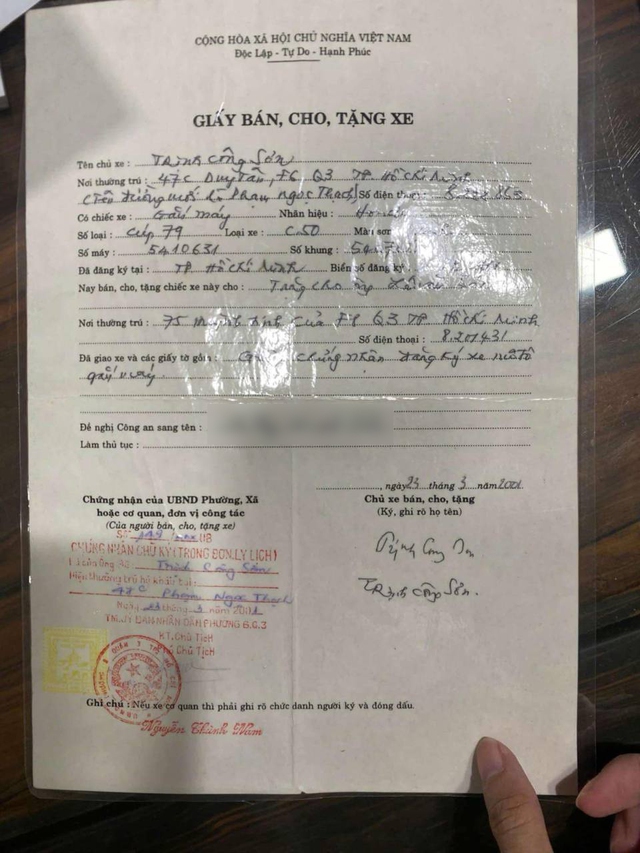 CỘNG HÒA XÃ HỘI CHỦ NGHĨA VIỆT NAM
Độc Lập - Tự Do - Hạnh Phúc
GIẤY BÁN, CHO, TẶNG XE
Tên chủ xe : TRỊNH CÔNG SƠN
Nơi thường trú : 47C Duy Tân, F6 Q3 TP Hồ Chí Minh
Phạm Ngọc Thạch) Số điện thoại :
Có chiếc xe : Gắn máy Nhãn hiệu :
Số loại : Cúp 79 Loại xe : C.50 Màu sơn
Số máy : 5410631 Số khung :
Đã đăng ký tại : TP Hồ Chí Minh Biển số đăng ký
Nay bán, cho, tặng chiếc xe này cho : Tặng cho
Nơi thường trú : 75 Huỳnh Tịnh Của F8 Q3 TP Hồ Chí Minh
Số điện thoại : 8.201431
Đã giao xe và các giấy tờ gồm : chứng nhận đăng ký xe môtô
gắn máy
Đề nghị Công an sang tên :
Làm thủ tục :
, ngày 23 tháng 3 năm 2001
Chứng nhận của UBND Phường, Xã
hoặc cơ quan, đơn vị công tác
(Của người bán, cho, tặng xe)
Chủ xe bán, cho, tặng
(Ký, ghi rõ họ tên)
CHỨNG NHẬN CHỮ KÝ (TRONG ĐƠN, LÝ LỊCH)
Là của Ông Bà Trịnh Công Sơn
Hiện thường trú hộ khẩu tại
47C Phạm Ngọc Thạch
Ngày 23 tháng 3 năm 2001
TM. ỦY BAN NHÂN DÂN PHƯỜNG 6.Q.3
KT. CHỦ TỊCH
CHỦ TỊCH
Trịnh Công Sơn
TRỊNH CÔNG SƠN.
Ghi chú : Nếu xe cơ quan thì phải ghi rõ chức danh người ký và đóng dấu.
Nguyễn Thành Năm